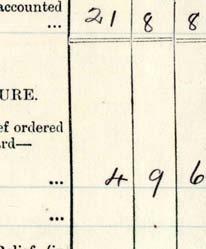 accounted
... 21 8 8
URE.
ef ordered
rd—
... 4 9 6
...
Relief (in